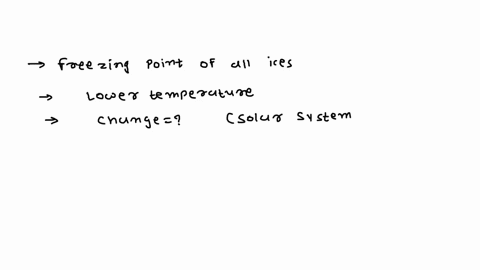 → freezing point of all ices
→ Lower temperature
→ change=? (solar system